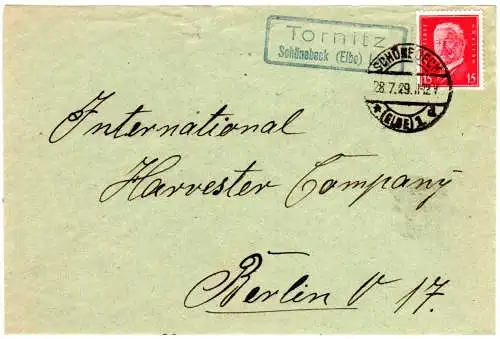 Tornitz
Schönebeck (Elbe)
SCHÖNEBECK
28.7.29.
* (ELBE) 1 d
15 15
International
Harvester Company
Berlin O 17.